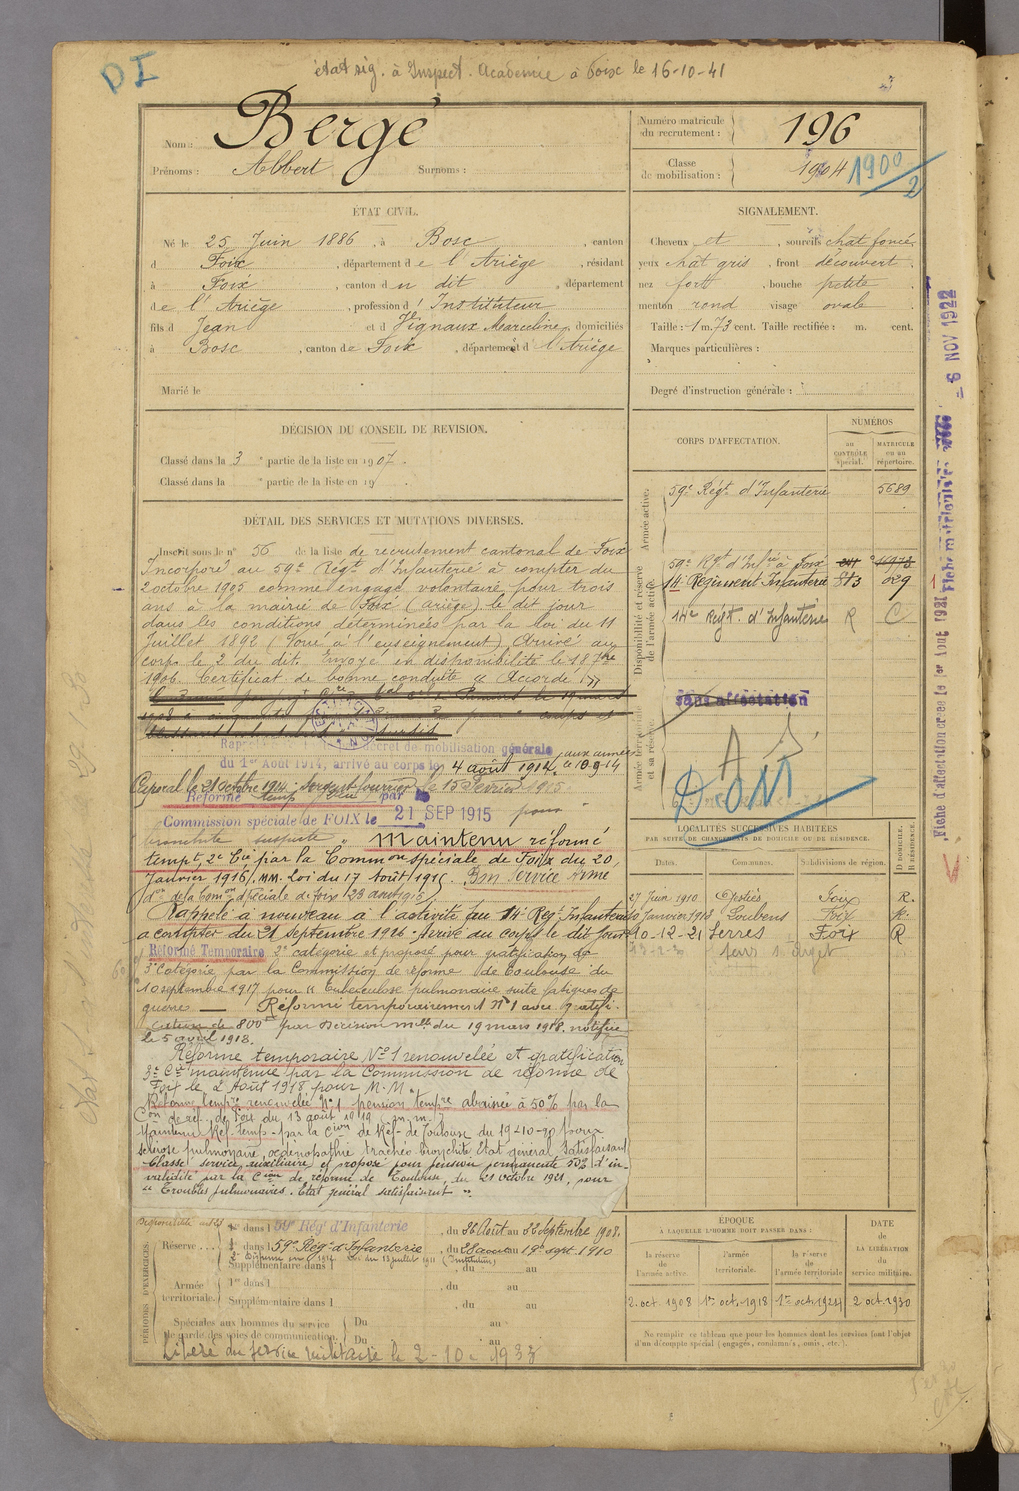 DI
état sig. à Inspect. Academie à Foix le 16-10-41
Nom : Bergé
Prénoms : Albert Surnoms :
Numéro matricule
du recrutement : 196
Classe
de mobilisation : 1904 1900/2
ÉTAT CIVIL.
Né le 25 Juin 1886, à Bosc, canton
d Foix, département de l'Ariège, résidant
à Foix, canton du dit, département
de l'Ariège, profession d'Instituteur
fils d Jean et d Vignaux Marceline, domiciliés
à Bosc, canton de Foix, département d l'Ariège
Marié le
SIGNALEMENT.
Cheveux et, sourcils chat foncé
yeux chat gris, front découvert
nez fort, bouche petite
menton rond visage ovale
Taille : 1 m. 73 cent. Taille rectifiée : m. cent.
Marques particulières :
Degré d'instruction générale :
DÉCISION DU CONSEIL DE REVISION.
Classé dans la 3e partie de la liste en 1907.
Classé dans la e partie de la liste en 19
DÉTAIL DES SERVICES ET MUTATIONS DIVERSES.
Inscrit sous le n° 56 de la liste de recrutement cantonal de Foix
Incorporé au 59e Régt d'Infanterie à compter du
2 octobre 1905 comme engagé volontaire pour trois
ans à la mairie de Foix (Ariège) le dit jour
dans les conditions déterminées par la loi du 11
Juillet 1892 (Voué à l'enseignement) Arrivé au
corps le 2 du dit. Envoyé en disponibilité le 18 7bre
1906. Certificat de bonne conduite "Accordé"
décret de mobilisation générale
du 1er Août 1914, arrivé au corps le 4 août 1914. aux armées
le 10-9-14
Caporal le 21 octobre 1914. Sergent fourrier le 15 Février 1915.
Réformé temp par la
Commission spéciale de FOIX le 21 SEP 1915 pour
bronchite suspecte " Maintenu réformé
tempre 2e Cie par la Common spéciale de Foix du 20
Janvier 1916, MM. Loi du 17 Août 1915. Bon Service Armé
don de la Comon spéciale de Foix 23 août 1916
Rappelé à nouveau à l'activité au 14e Régt Infanterie
à compter du 21 septembre 1916. Arrivé au corps le dit jour
Réformé Temporaire 2e catégorie et proposé pour gratification de
3e Catégorie par la Commission de réforme de Toulouse du
10 septembre 1917 pour "Tuberculose pulmonaire suite fatigues de
guerre — Réformé temporairement N°1 avec gratifi-
cation de 800f par Décision mlle du 19 mars 1918. notifiée
le 5 avril 1918.
Réforme temporaire N°1 renouvelée et gratification
3e Cie maintenue par la Commission de réforme de
Foix le 2 Août 1918 pour M. M.
Réforme tempre renouvelée N°1 pension tempre abaissée à 50% par la
Con de réf. de Foix du 13 août 1919 (m. m.)
Maintenu Réf. temp. par la Cion de Réf. de Toulouse du 19-10-20 pour
sclérose pulmonaire, adénopathie trachéo-bronchite. Etat général satisfaisant
Classé service auxiliaire et proposé pour pension permanente 50% d'in-
validité par la Cion de réforme de Toulouse, du 21 octobre 1921, pour
"Troubles pulmonaires. Etat général satisfaisant".
CORPS D'AFFECTATION.
NUMÉROS
au
CONTRÔLE
spécial.
MATRICULE
ou au
répertoire.
Armée active.
59e Régt d'Infanterie 5689
Disponibilité et réserve
de l'armée active.
59e Rgt d'Infie à Foix
14e Régiment Infanterie 029
14e Régt. d'Infanterie R C
Armée territoriale
et sa réserve.
Sans affectation
DOM
LOCALITÉS SUCCESSIVES HABITÉES
PAR SUITE DE CHANGEMENTS DE DOMICILE OU DE RÉSIDENCE.
Dates. Communes. Subdivisions de région. D DOMICILE. R RÉSIDENCE.
27 Juin 1910 Foix R.
Janvier 1913 Loubens Foix R.
10-12-21 Serres Foix R
Fiche d'affectation créée le 1er Août 1921
Fiche matriculaire
- 6 NOV 1922
PÉRIODES D'EXERCICES.
Réserve . . . 1re dans l 59e Rég' d'Infanterie, du 26 Août au 22 Septembre 1908.
2e dans l 59e Régt d'Infanterie, du 28 août au 19 sept. 1910
Supplémentaire dans l, du au
Armée
territoriale. 1re dans l, du au
Supplémentaire dans l, du au
Spéciales aux hommes du service
de garde des voies de communication. Du au
Du au
Libéré du service militaire le 2-10-1933
ÉPOQUE
À LAQUELLE L'HOMME DOIT PASSER DANS :
la réserve
de
l'armée active.
l'armée
territoriale.
la réserve
de
l'armée territoriale
DATE
de
LA LIBÉRATION
du
service militaire.
2. oct. 1908 1er oct. 1918 1er oct. 1924 2 oct. 1930
Ne remplir ce tableau que pour les hommes dont les services font l'objet
d'un décompte spécial (engagés, condamnés, omis, etc.).